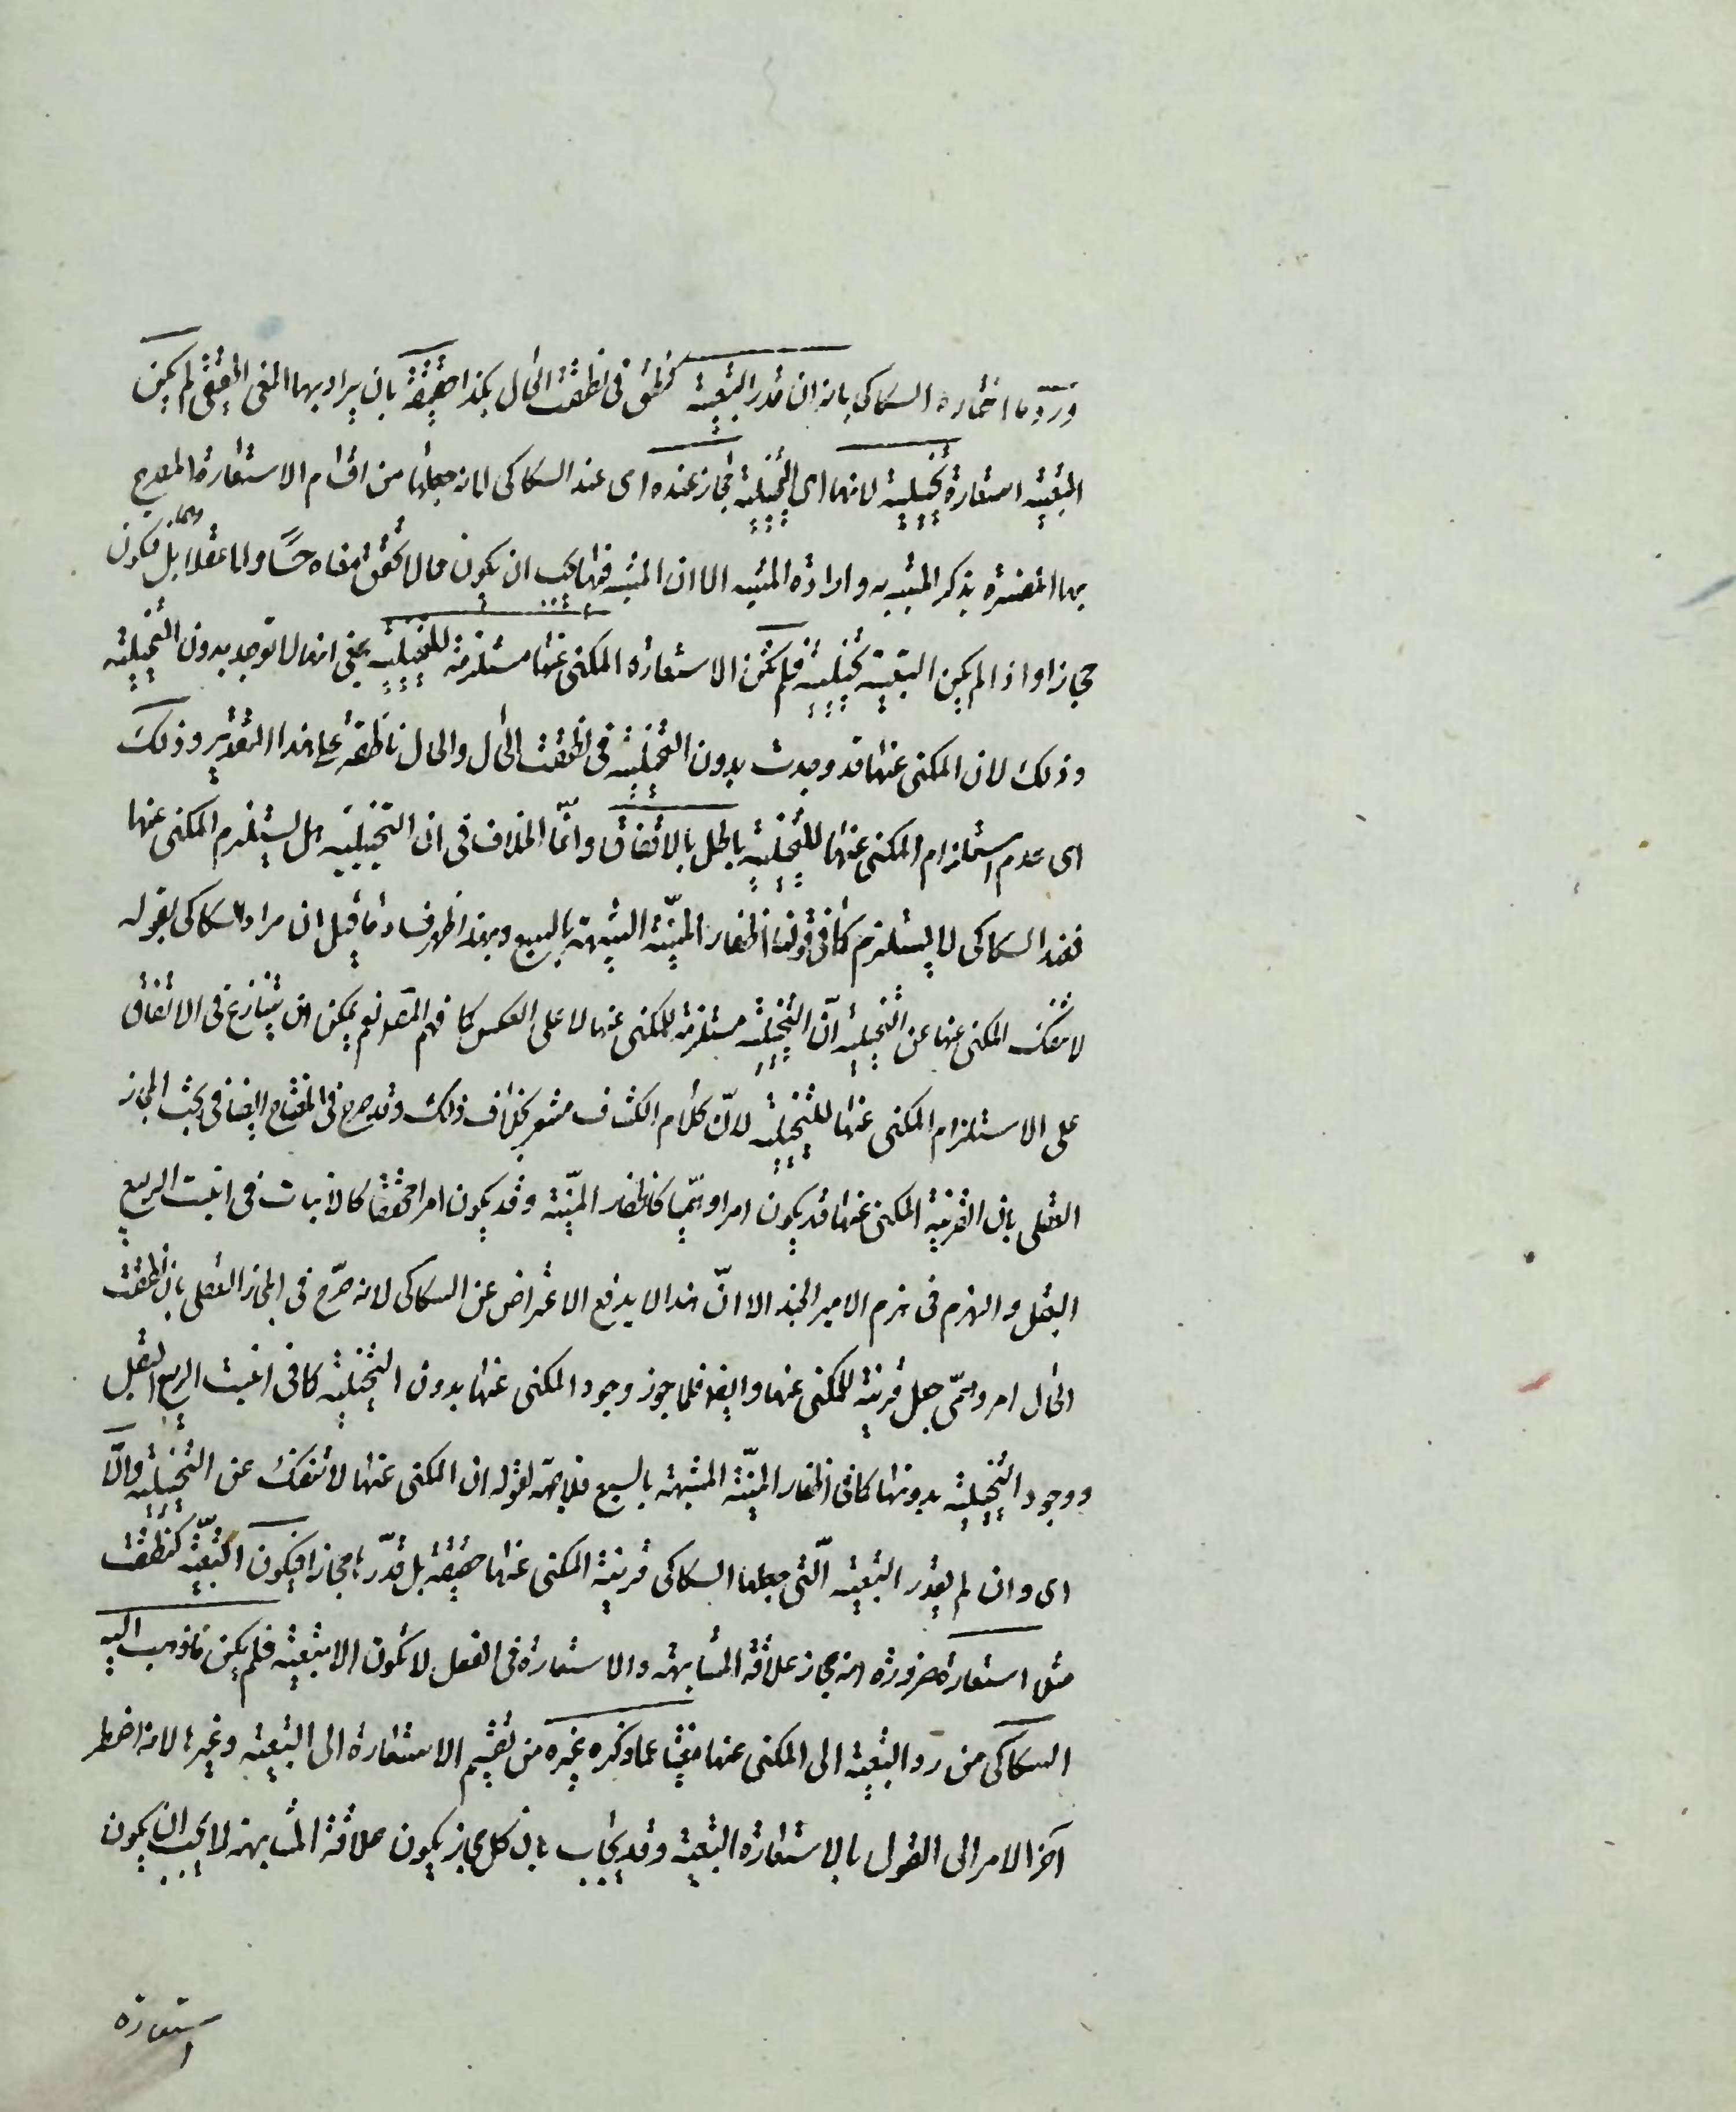 ورد ما اختاره السكاكي بانه ان قدر التبعية كنطقت في نطقت الحال بكذا حقيقة بان يراد بها المعنى الحقيقي لم يكن
التبعية استعارة تخييلية لانها اى التخييلية مجاز عنده اى عند السكاكى لانه جعلها من اقسام الاستعارة المصرح
بها المفسرة بذكر المشبه به وارادة المشبه الا ان المشبه فيها يجب ان يكون مما لا تحقق لمعناه حسا ولا عقلا بل وهما فيكون
مجازا واذا لم يكن التبعية تخييلية فلم تكن الاستعارة المكنى عنها مستلزمة للتخييلية بمعنى انها لا توجد بدون التخييلية
وذلك لان المكنى عنها قد وجدت بدون التخييلية في نطقت الحال والحال ناطقة على هذا التقدير وذلك
اى عدم استلزام المكنى عنها للتخييلية باطل بالاتفاق وانما الخلاف فى ان التخييلية هل يستلزم المكنى عنها
فعند السكاكى لا يستلزم كما فى قولنا اظفار المنية الشبيهة بالسبع وبهذا ظهر فساد ما قيل ان مراد السكاكى بقوله
لا تنفك المكنى عنها عن التخييلية انّ التخييلية مستلزمة للمكنى عنها لا على العكس كما فهم المص نعم يمكن ان ينازع فى الاتفاق
على الاستلزام المكنى عنها للتخييلية لانّ كلام الكشاف مشعر بخلاف ذلك وقد صرح فى المفتاح ايضا فى بحث المجاز
العقلى بان القرينة المكنى عنها قد يكون امرا وهميا كاظفار المنيّة وقد يكون امرا محققا كالانبات فى انبت الربيع
البقل والهزم فى هزم الامير الجند الا انّ هذا لا يدفع الاعتراض عن السكاكى لانه صرّح فى المجاز العقلى بان نطقت
الحال امر وهمّى جعل قرينة للمكنى عنها وايضا فلما جوز وجود المكنى عنها بدون التخييلية كما فى انبت الربيع البقل
ووجود التخييلية بدونها كما فى اظفار المنيّة المشبهة بالسبع فلا جهة لقوله ان المكنى عنها لا تنفك عن التخييلية والّا
اى وان لم يقدر التبعية الّتى جعلها السكاكى قرينة المكنى عنها حقيقة بل قدّرها مجازا فيكون التبعيّة كنطقت
مثلا استعارة ضرورة انه مجاز علاقة المشابهة والاستعارة فى الفعل لا تكون الا تبعية فلم يكن ما ذهب اليه
السكاكى من رد التبعية الى المكنى عنها مغنيا عما ذكره غيره من تقسيم الاستعارة الى التبعية وغيرها لانه اضطر
آخر الامر الى القول بالاستعارة التبعية وقد يجاب بان كل مجاز يكون علاقة المشابهة لا يجب ان يكون
استعارة